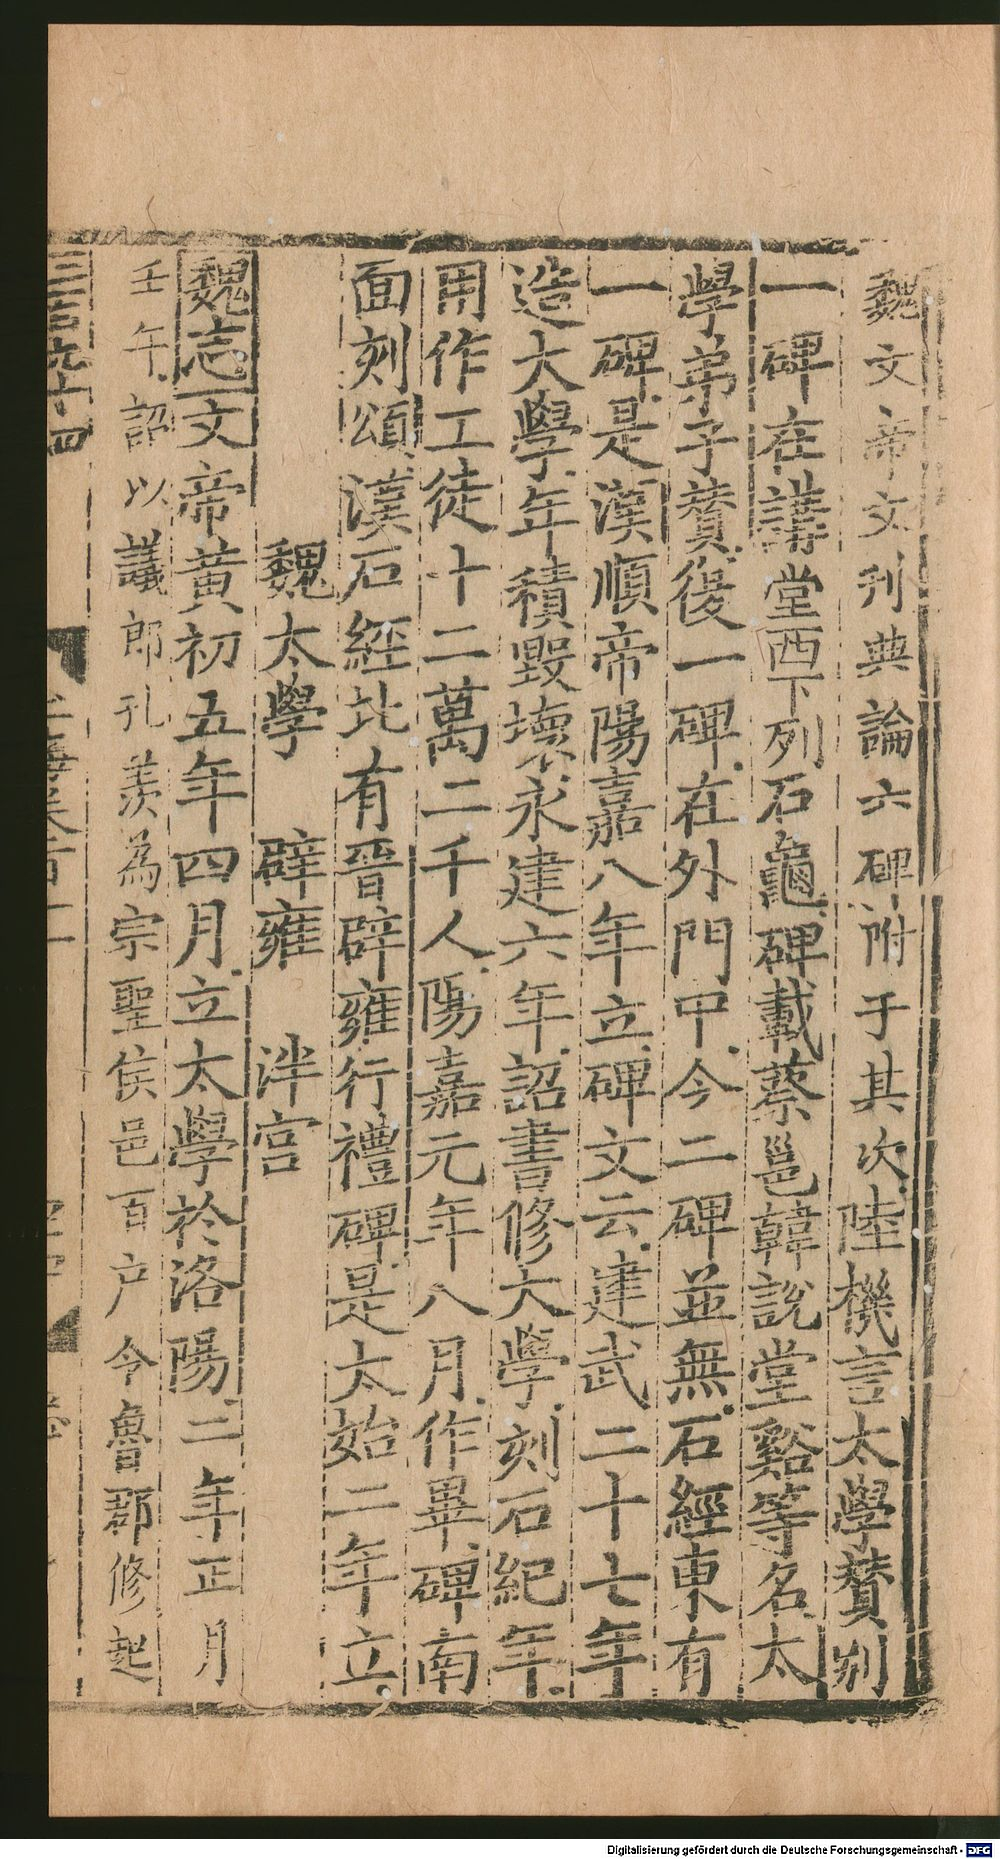 魏文帝文刋典論六碑附于其次陸機言太學賛别
一碑在講堂西下列石龜碑載蔡邕韓說堂谿等名太
學弟子賛復一碑在外門中今二碑並無石經東有
一碑是漢順帝陽嘉八年立碑文云建武二十七年
造大學年積毀壞永建六年詔書修大學刻石紀年
用作工徒十二萬二千人陽嘉元年八月作畢碑南
面刻頌漢石經北有晉辟雍行禮碑是太始二年立
魏太學　辟雍　泮宫
魏志文帝黃初五年四月立太學於洛陽二年正月
壬午詔以議郎孔羨為宗聖侯邑百户令魯郡修起
三百九十四
Digitalisierung gefördert durch die Deutsche Forschungsgemeinschaft - DFG